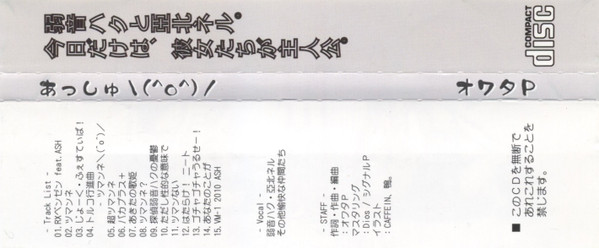 弱音ハクと亞北ネル。
今日だけは、彼女たちが主人公。
COMPACT
disc
みっしゅ＼(^o^)／
オワタP
- Track List -
01. RXベンゼン feat.ASH
02. ツマンネ
03. じょいふ・ふぇすてぃば!
04. トルコ行進曲
- ツマンネ＼(^o^)／
05. 裏ツマンネ
06. パカプラス+
07. あきたの歌姫
08. ツマンネ?
09. 探偵弱音ハクの憂鬱
10. ただし性的な意味で
11. ツマンない
12. はたらけ! ニート
13. ゴチャゴチャうるせー!
14. あなたのことが
15. VM-1 2010 ASH
- Vocal -
弱音ハク・亞北ネル
その他愉快な仲間たち
- STAFF -
作詞・作曲・編曲
:オワタP
マスタリング
:Dios / シグナルP
イラスト
:CAFFEIN, 鴨。
■ このCDを無断で
あれこれすることを
禁じます。